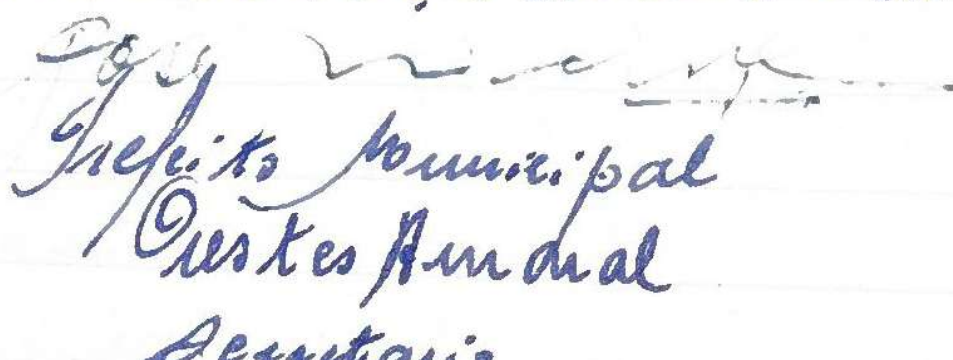 Prefeito Municipal
Orestes Amaral
Secretario